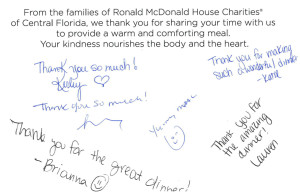 From the families of Ronald McDonald House Charities®
of Central Florida, we thank you for sharing your time with us
to provide a warm and comforting meal.
Your kindness nourishes the body and the heart.
Thank you so much!
Kelly
Thank you for making
such a wonderful dinner
Thank you so much!
Yummy
Thank you for
the amazing
dinner!
Lauren
Thank you for the great dinner!
- Brianna